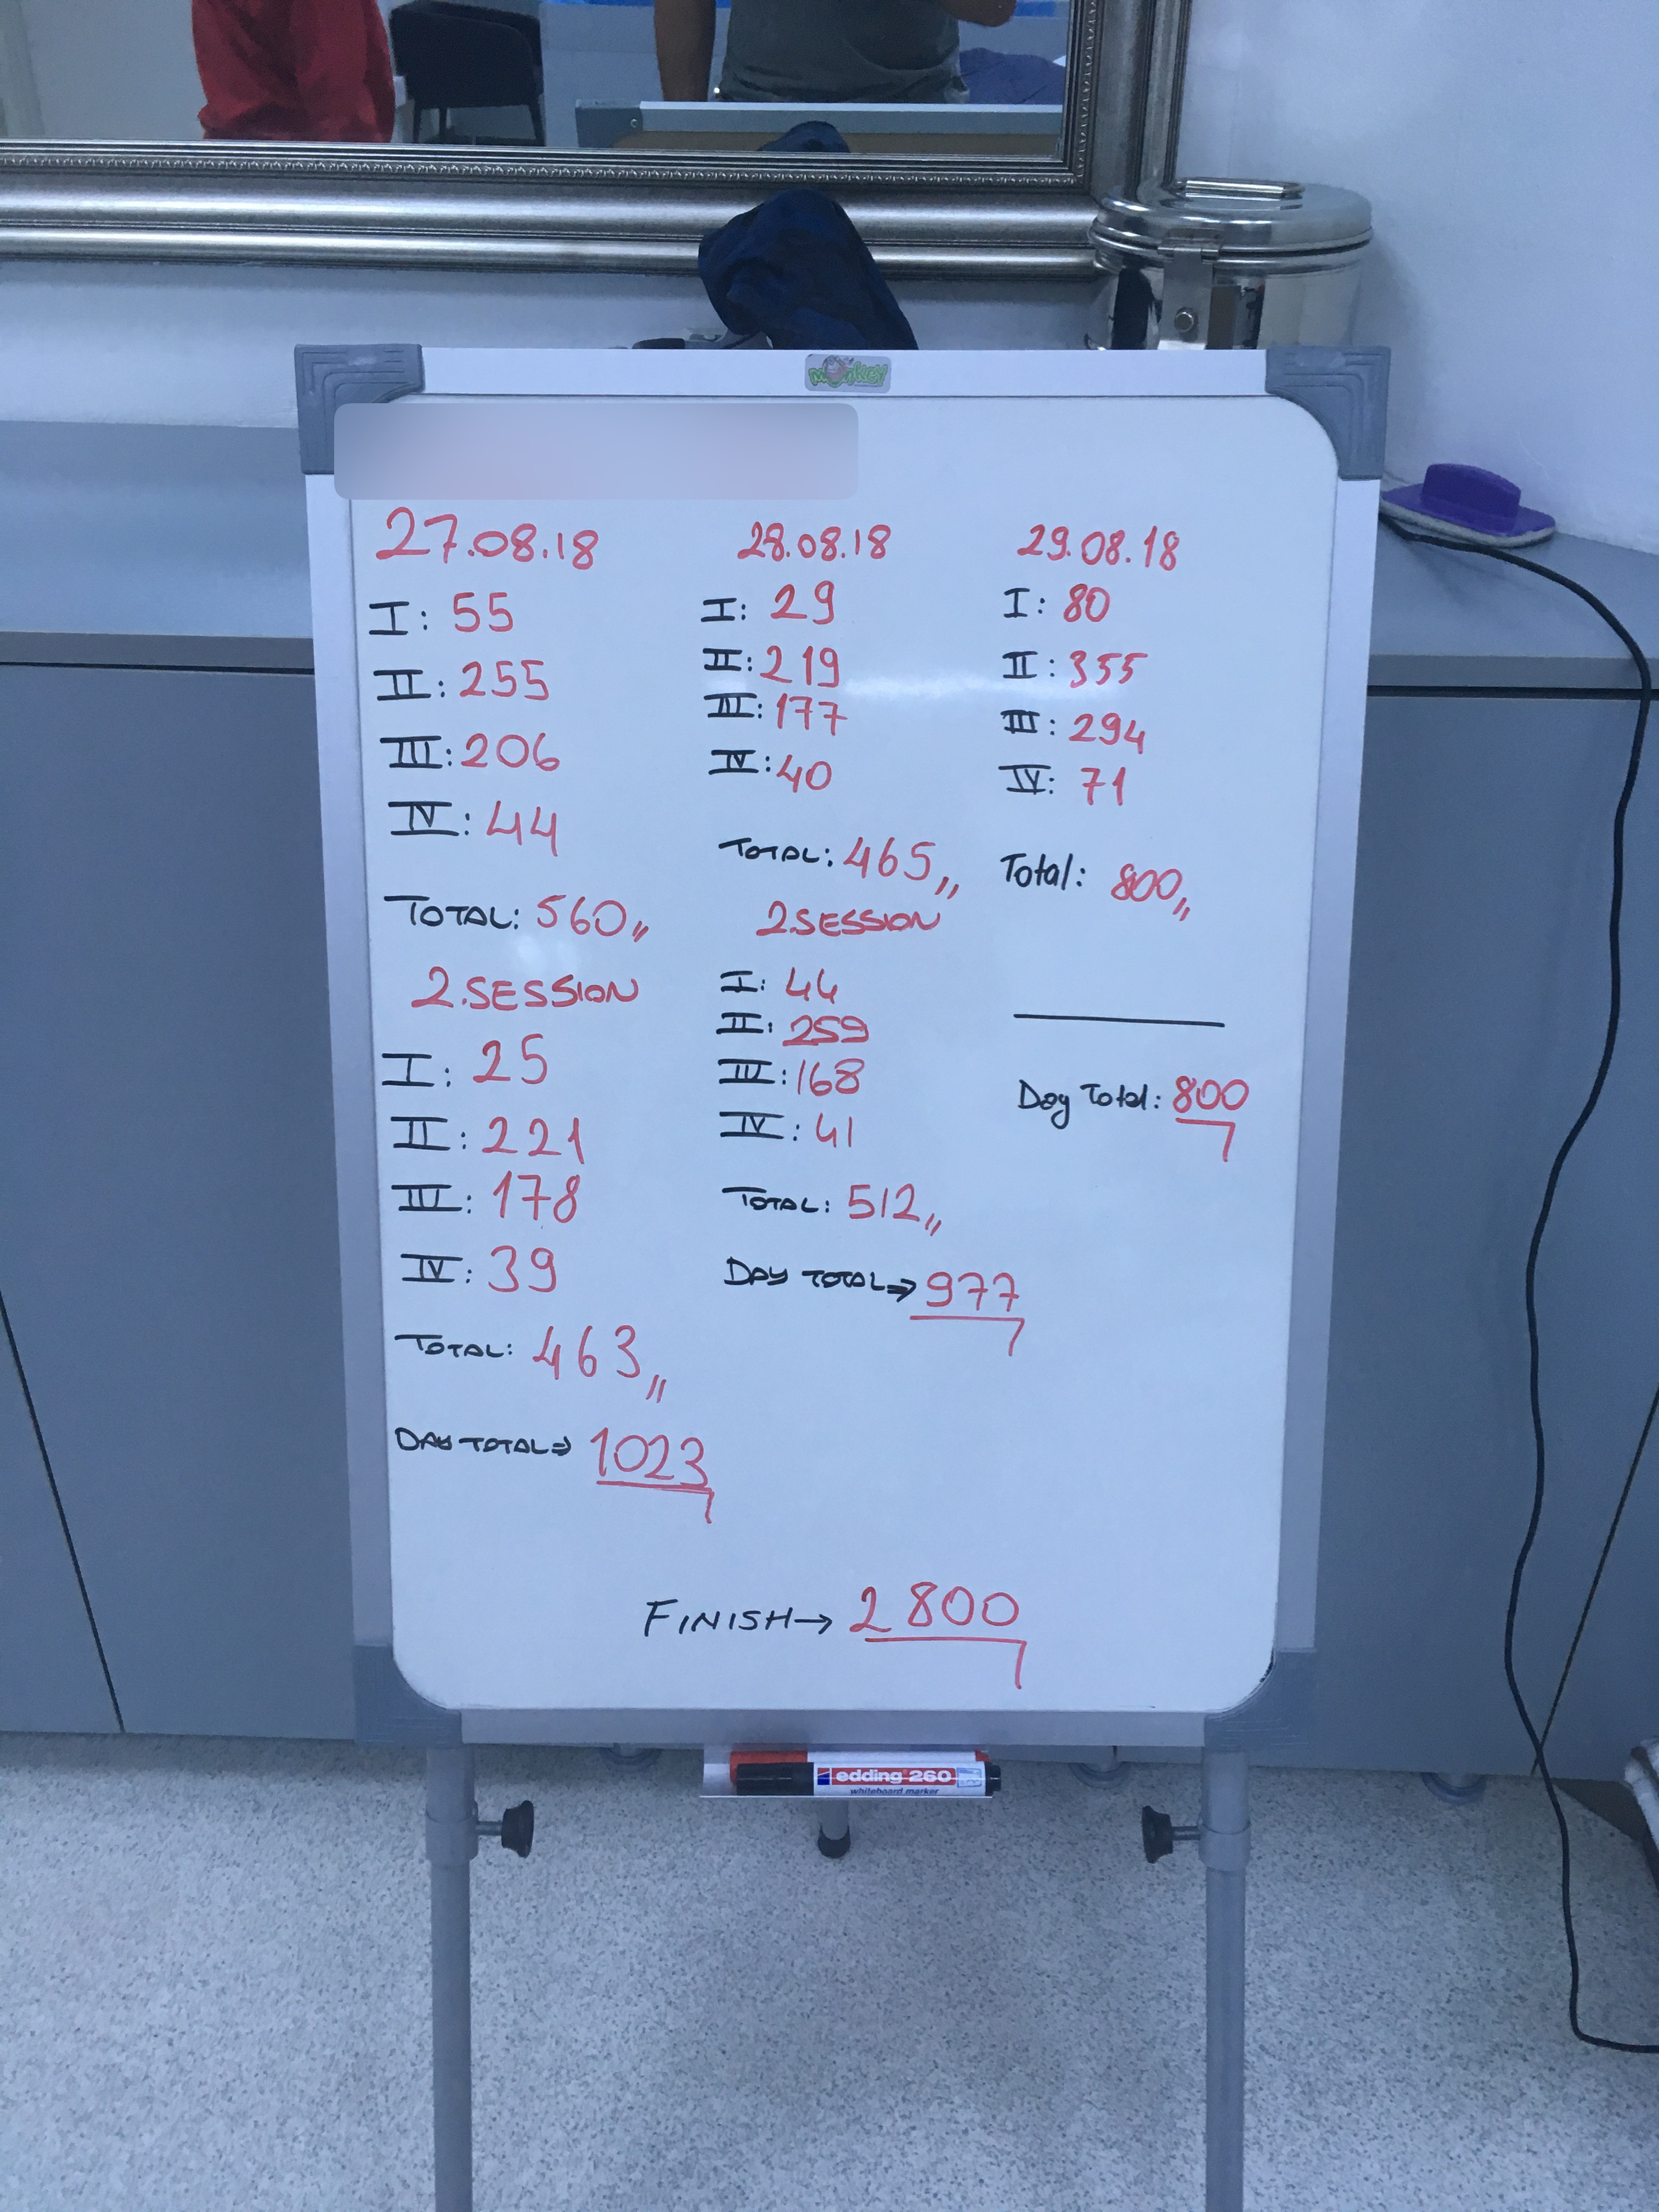 MONKEY
27.08.18
I: 55
II: 255
III: 206
IV: 44
TOTAL: 560,,
2.SESSION
I: 25
II: 221
III: 178
IV: 39
TOTAL: 463,,
DAY TOTAL⇒ 1023
28.08.18
I: 29
II: 219
III: 177
IV: 40
TOTAL: 465,,
2.SESSION
I: 44
II: 259
III: 168
IV: 41
TOTAL: 512,,
DAY TOTAL⇒ 977
29.08.18
I: 80
II: 355
III: 294
IV: 71
Total: 800,,
Day Total: 800
FINISH→ 2800
edding 260
whiteboard marker